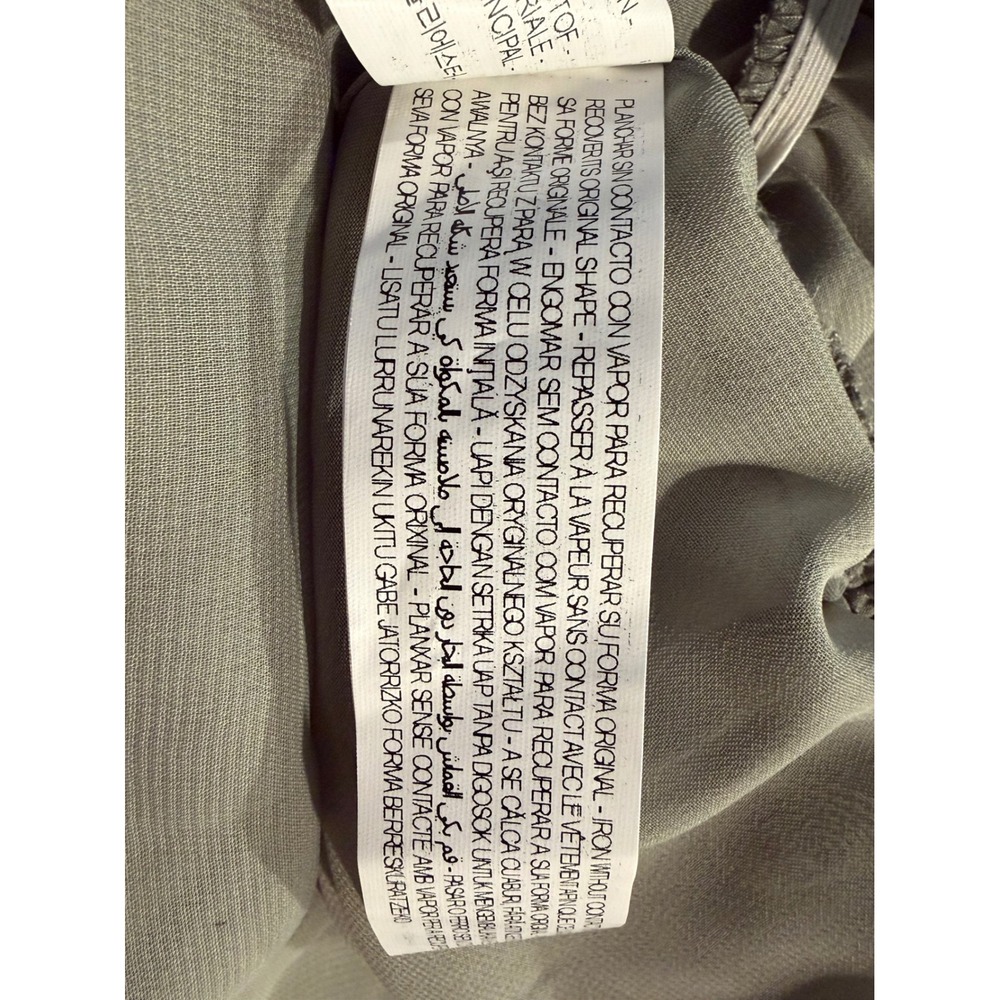 N -
T OF -
RIALE -
NCIPAL -
PLANCHAR SIN CONTACTO CON VAPOR PARA RECUPERAR SU FORMA ORIGINAL - IRON WITHOUT CONT
RECOVER ITS ORIGINAL SHAPE - REPASSER À LA VAPEUR SANS CONTACT AVEC LE VÊTEMENT AFIN QUE CE
SA FORME ORIGINALE - ENGOMAR SEM CONTACTO COM VAPOR PARA RECUPERAR A SUA FORMA ORIGI
BEZ KONTAKTU Z PARA W CELU ODZYSKANIA ORYGINALNEGO KSZTAŁTU - A SE CĂLCA CU ABUR, FĂRĂ
PENTRU A-ŞI RECUPERA FORMA INIŢIALĂ - UAPI DENGAN SETRIKA UAP TANPA DIGOSOK UNTUK
AWALNYA - قم بكي القماش بواسطة البخار دون الحاجة إلى ملامسته بالمكواة كي يستعيد شكله الأصلي - PASAR O FERRO SEN
CON VAPOR PARA RECUPERAR A SÚA FORMA ORIXINAL - PLANXAR SENSE CONTACTE AMB VAPOR PER A
SEVA FORMA ORIGINAL - LISATU LURRUNAREKIN UKITU GABE JATORRIZKO FORMA BERRESKURATZEKO